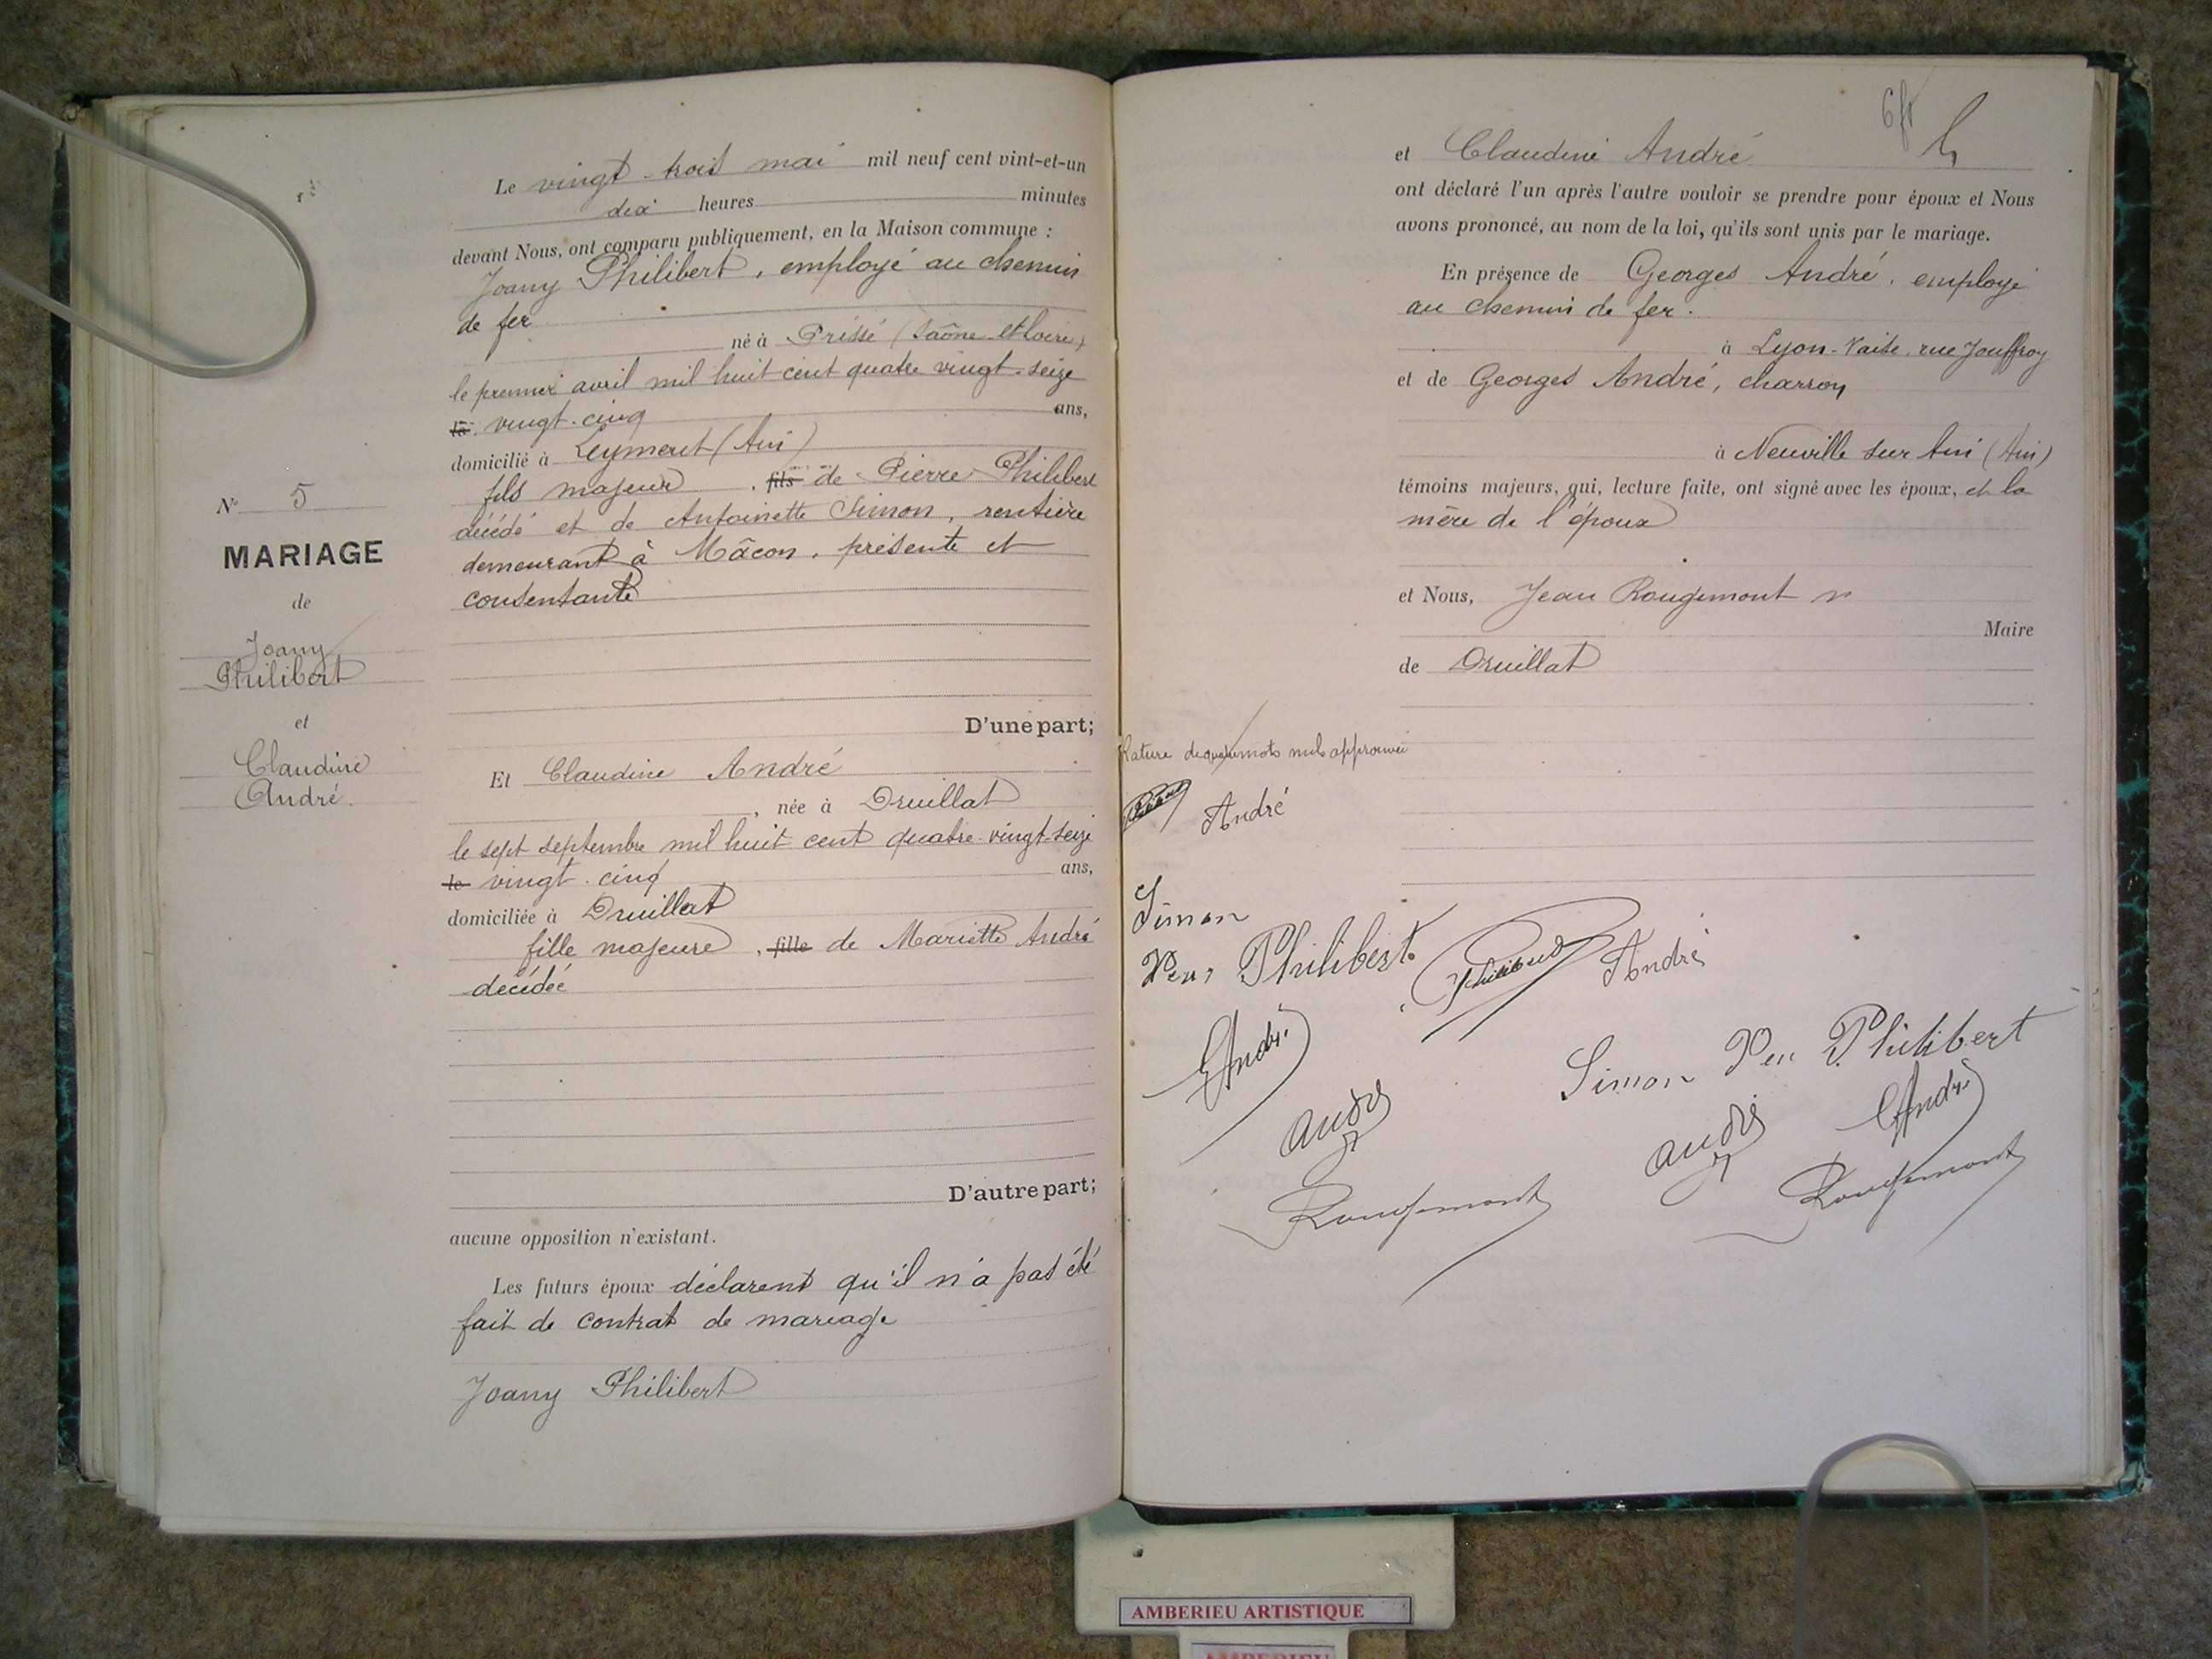 Le vingt-trois mai mil neuf cent vint-et-un
dix heures minutes
devant Nous, ont comparu publiquement, en la Maison commune :
Joany Philibert, employé au chemin
de fer
né à Prissé (Saône et Loire)
le premier avril mil huit cent quatre vingt-seize
vingt-cinq ans,
domicilié à Leyment (Ain)
fils majeur, fils de Pierre Philibert
décédé et de Antoinette Simon, rentière
demeurant à Mâcon, présente et
consentante
D'une part;
N° 5
MARIAGE
de
Joany
Philibert
et
Claudine
André.
Et Claudine André
, née à Druillat
le sept septembre mil huit cent quatre-vingt-seize
le vingt-cinq ans,
domiciliée à Druillat
fille majeure, fille de Mariette André
décédée
D'autre part;
aucune opposition n'existant.
Les futurs époux déclarent qu'il n'a pas été
fait de contrat de mariage
Joany Philibert
6
et Claudine André
ont déclaré l'un après l'autre vouloir se prendre pour époux et Nous
avons prononcé, au nom de la loi, qu'ils sont unis par le mariage.
En présence de Georges André, employé
au chemin de fer.
à Lyon-Vaise, rue Jouffroy
et de Georges André, charron
à Neuville sur Ain (Ain)
témoins majeurs, qui, lecture faite, ont signé avec les époux, et la
mère de l'époux
et Nous, Jean Rougemont
Maire
de Druillat
Rature de mots nuls approuvée
André
Simon
Veuve Philibert
Philibert
André
GAndré
Simon Veu Philibert
André
André
GAndré
Rougemont
Rougemont
AMBERIEU ARTISTIQUE
AMBERIEU